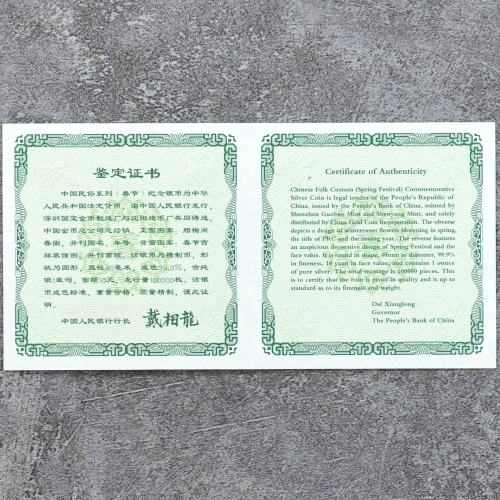 鉴定证书
中国民俗系列（春节）纪念银币为中华
人民共和国法定货币，由中国人民银行发行
深圳国宝金币制造厂与沈阳造币厂共同铸造，
中国金币总公司总经销。正面图案：腊梅闹
春图，并刊国名、年号。背面图案：春节吉
祥装饰图，并刊面额。该银币为精制币，形
状为圆形，直径40毫米，成色99.9%，含纯
银1盎司，面额10元，发行量100000枚，该银
币成色标准，重量合格，质量精制，谨此证
明。
中国人民银行行长 戴相龍
Certificate of Authenticity
Chinese Folk Custom (Spring Festival) Commemorative
Silver Coin is legal tender of the People's Republic of
China, issued by the People's Bank of China, minted by
Shenzhen Guobao Mint and Shenyang Mint, and solely
distributed by China Gold Coin Incorporation. The obverse
depicts a design of wintersweet flowers blooming in spring,
the title of PRC and the minting year. The reverse features
an auspicious decorative design of Spring Festival and the
face value. It is round in shape, 40mm in diameter, 99.9%
in fineness, 10 yuan in face value, and contains 1 ounce
of pure silver. The total mintage is 100000 pieces. This
is to certify that the coin is proof in quality and is up to
standard as to its fineness and weight.
Dai Xianglong
Governor
The People's Bank of China